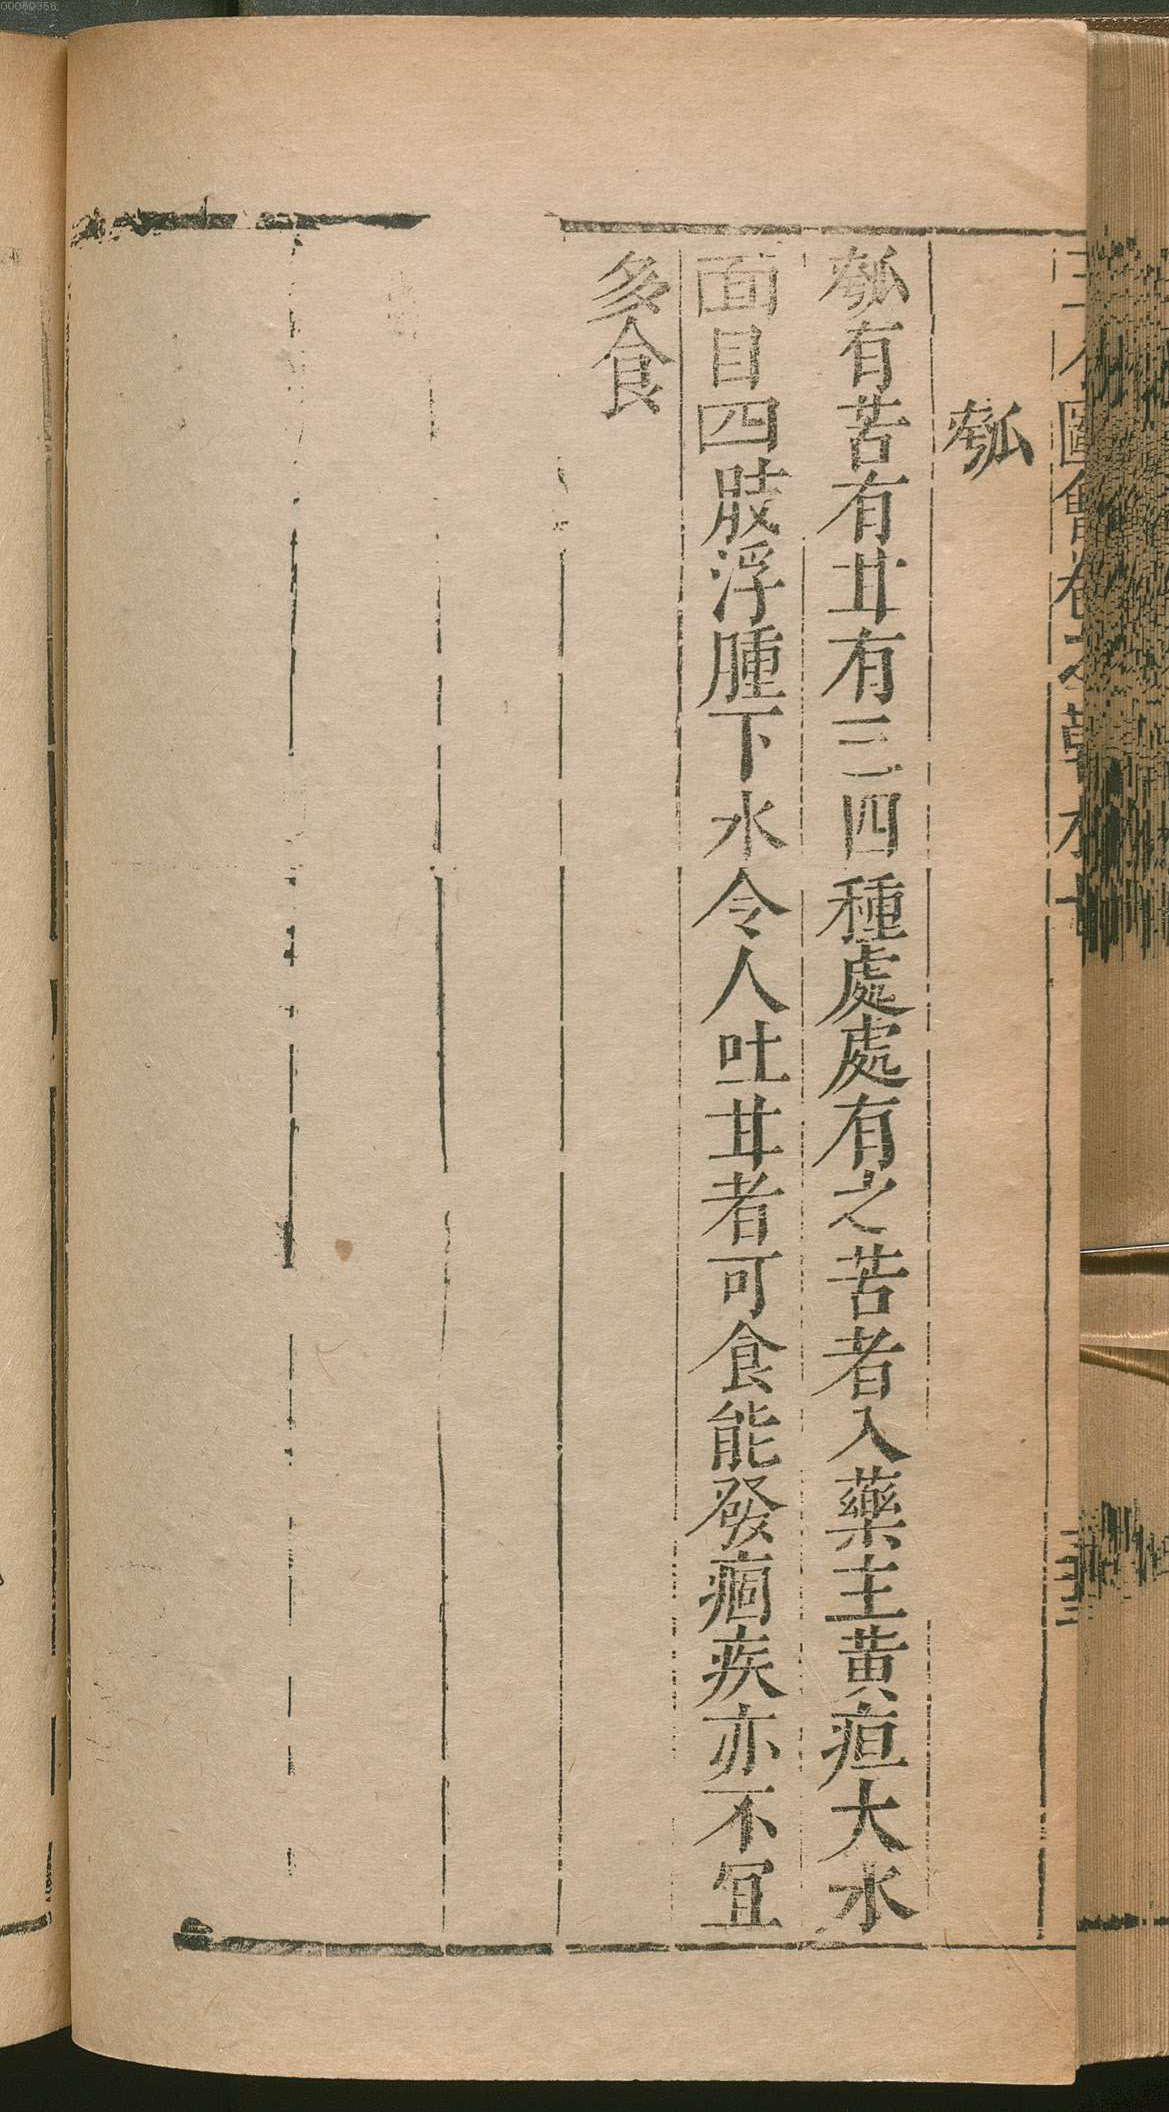 瓠
瓠有苦有甘有三四種處處有之苦者入藥主黃疸大水
面目四肢浮腫下水令人吐甘者可食能發痼疾亦不冝
多食
00060356